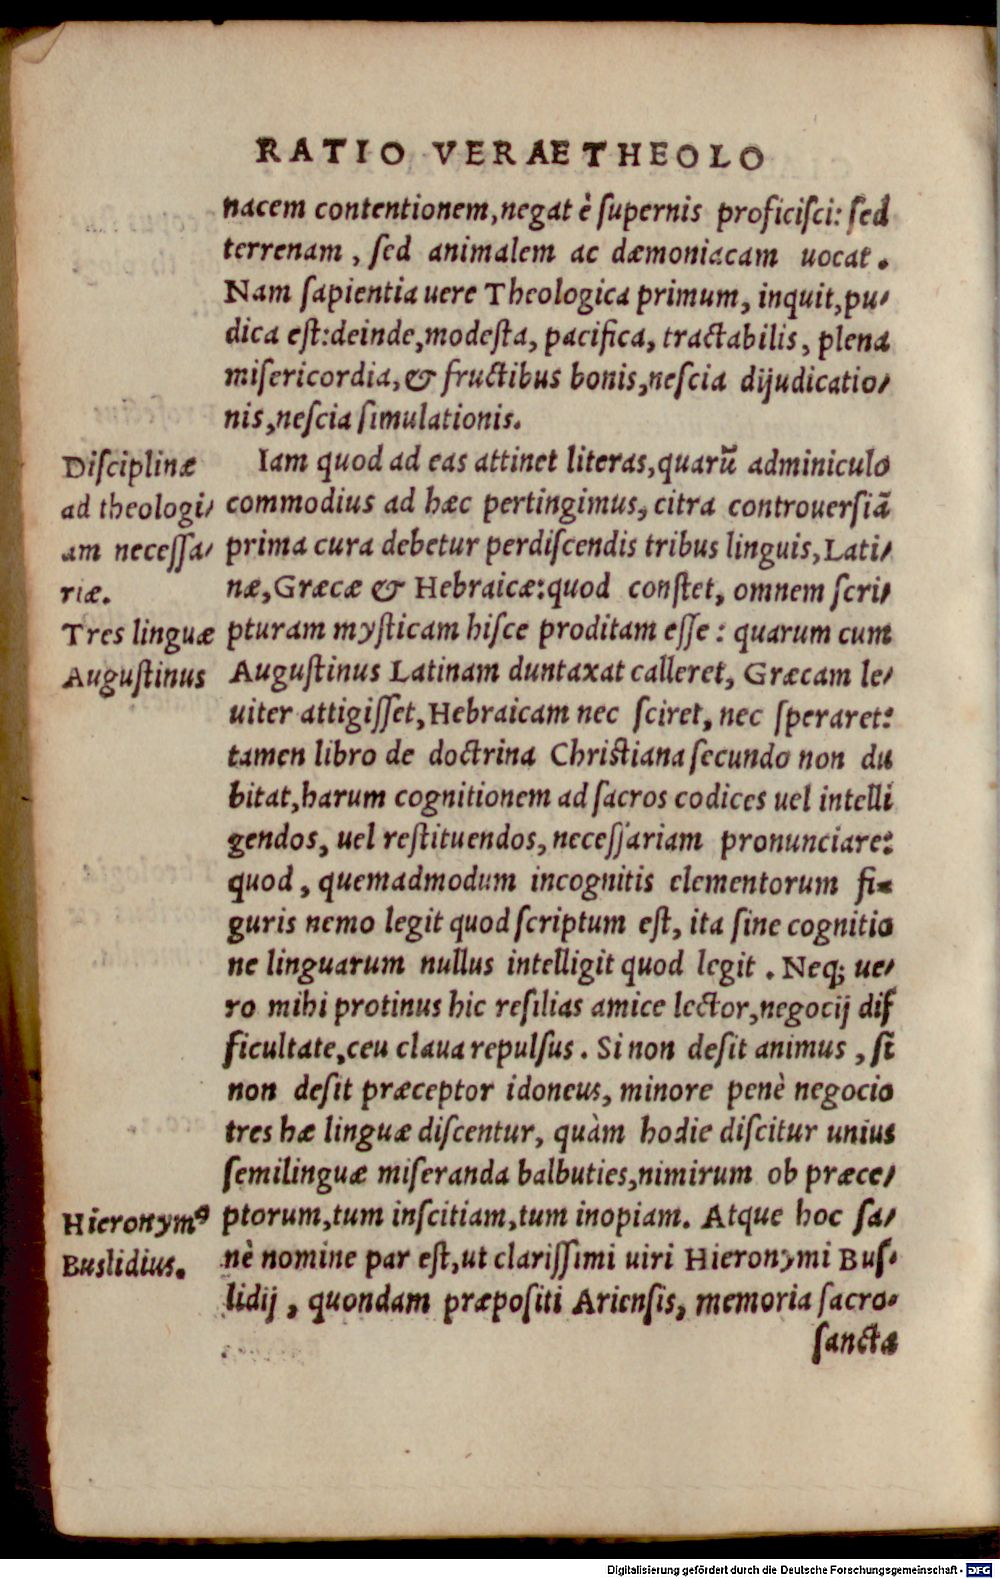 RATIO VERAE THEOLO
nacem contentionem, negat è ſupernis proficiſci: ſed
terrenam, ſed animalem ac dæmoniacam uocat.
Nam ſapientia uere Theologica primum, inquit, pu-
dica eſt: deinde, modeſta, pacifica, tractabilis, plena
miſericordia, & fructibus bonis, neſcia dijudicatio-
nis, neſcia ſimulationis.
Diſciplinæ
ad theologi-
am neceſſa-
riæ.
Tres linguæ
Auguſtinus
Iam quod ad eas attinet literas, quarū adminiculo
commodius ad hæc pertingimus, citra controuerſiā
prima cura debetur perdiſcendis tribus linguis, Lati-
næ, Græcæ & Hebraicæ: quod conſtet, omnem ſcri-
pturam myſticam hiſce proditam eſſe: quarum cum
Auguſtinus Latinam duntaxat calleret, Græcam le-
uiter attigiſſet, Hebraicam nec ſciret, nec ſperaret:
tamen libro de doctrina Chriſtiana ſecundo non du
bitat, harum cognitionem ad ſacros codices uel intelli
gendos, uel reſtituendos, neceſſariam pronunciare:
quod, quemadmodum incognitis elementorum fi-
guris nemo legit quod ſcriptum eſt, ita ſine cognitio
ne linguarum nullus intelligit quod legit. Neq; ue-
ro mihi protinus hic reſilias amice lector, negocij dif
ficultate, ceu claua repulſus. Si non deſit animus, ſi
non deſit præceptor idoneus, minore penè negocio
tres hæ linguæ diſcentur, quàm hodie diſcitur unius
ſemilinguæ miſeranda balbuties, nimirum ob præce-
Hieronymꝰ
Buslidius.
ptorum, tum inſcitiam, tum inopiam. Atque hoc ſa-
nè nomine par eſt, ut clariſſimi uiri Hieronymi Buſ-
lidij, quondam præpoſiti Arienſis, memoria ſacro-
ſancta
Digitalisierung gefördert durch die Deutsche Forschungsgemeinschaft - DFG